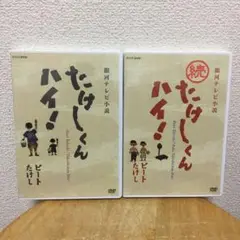 銀河テレビ小説
たけしくん
ハイ!
ビート
たけし
DVD
銀河テレビ小説
続
たけしくん
ハイ!
ビート
たけし
DVD